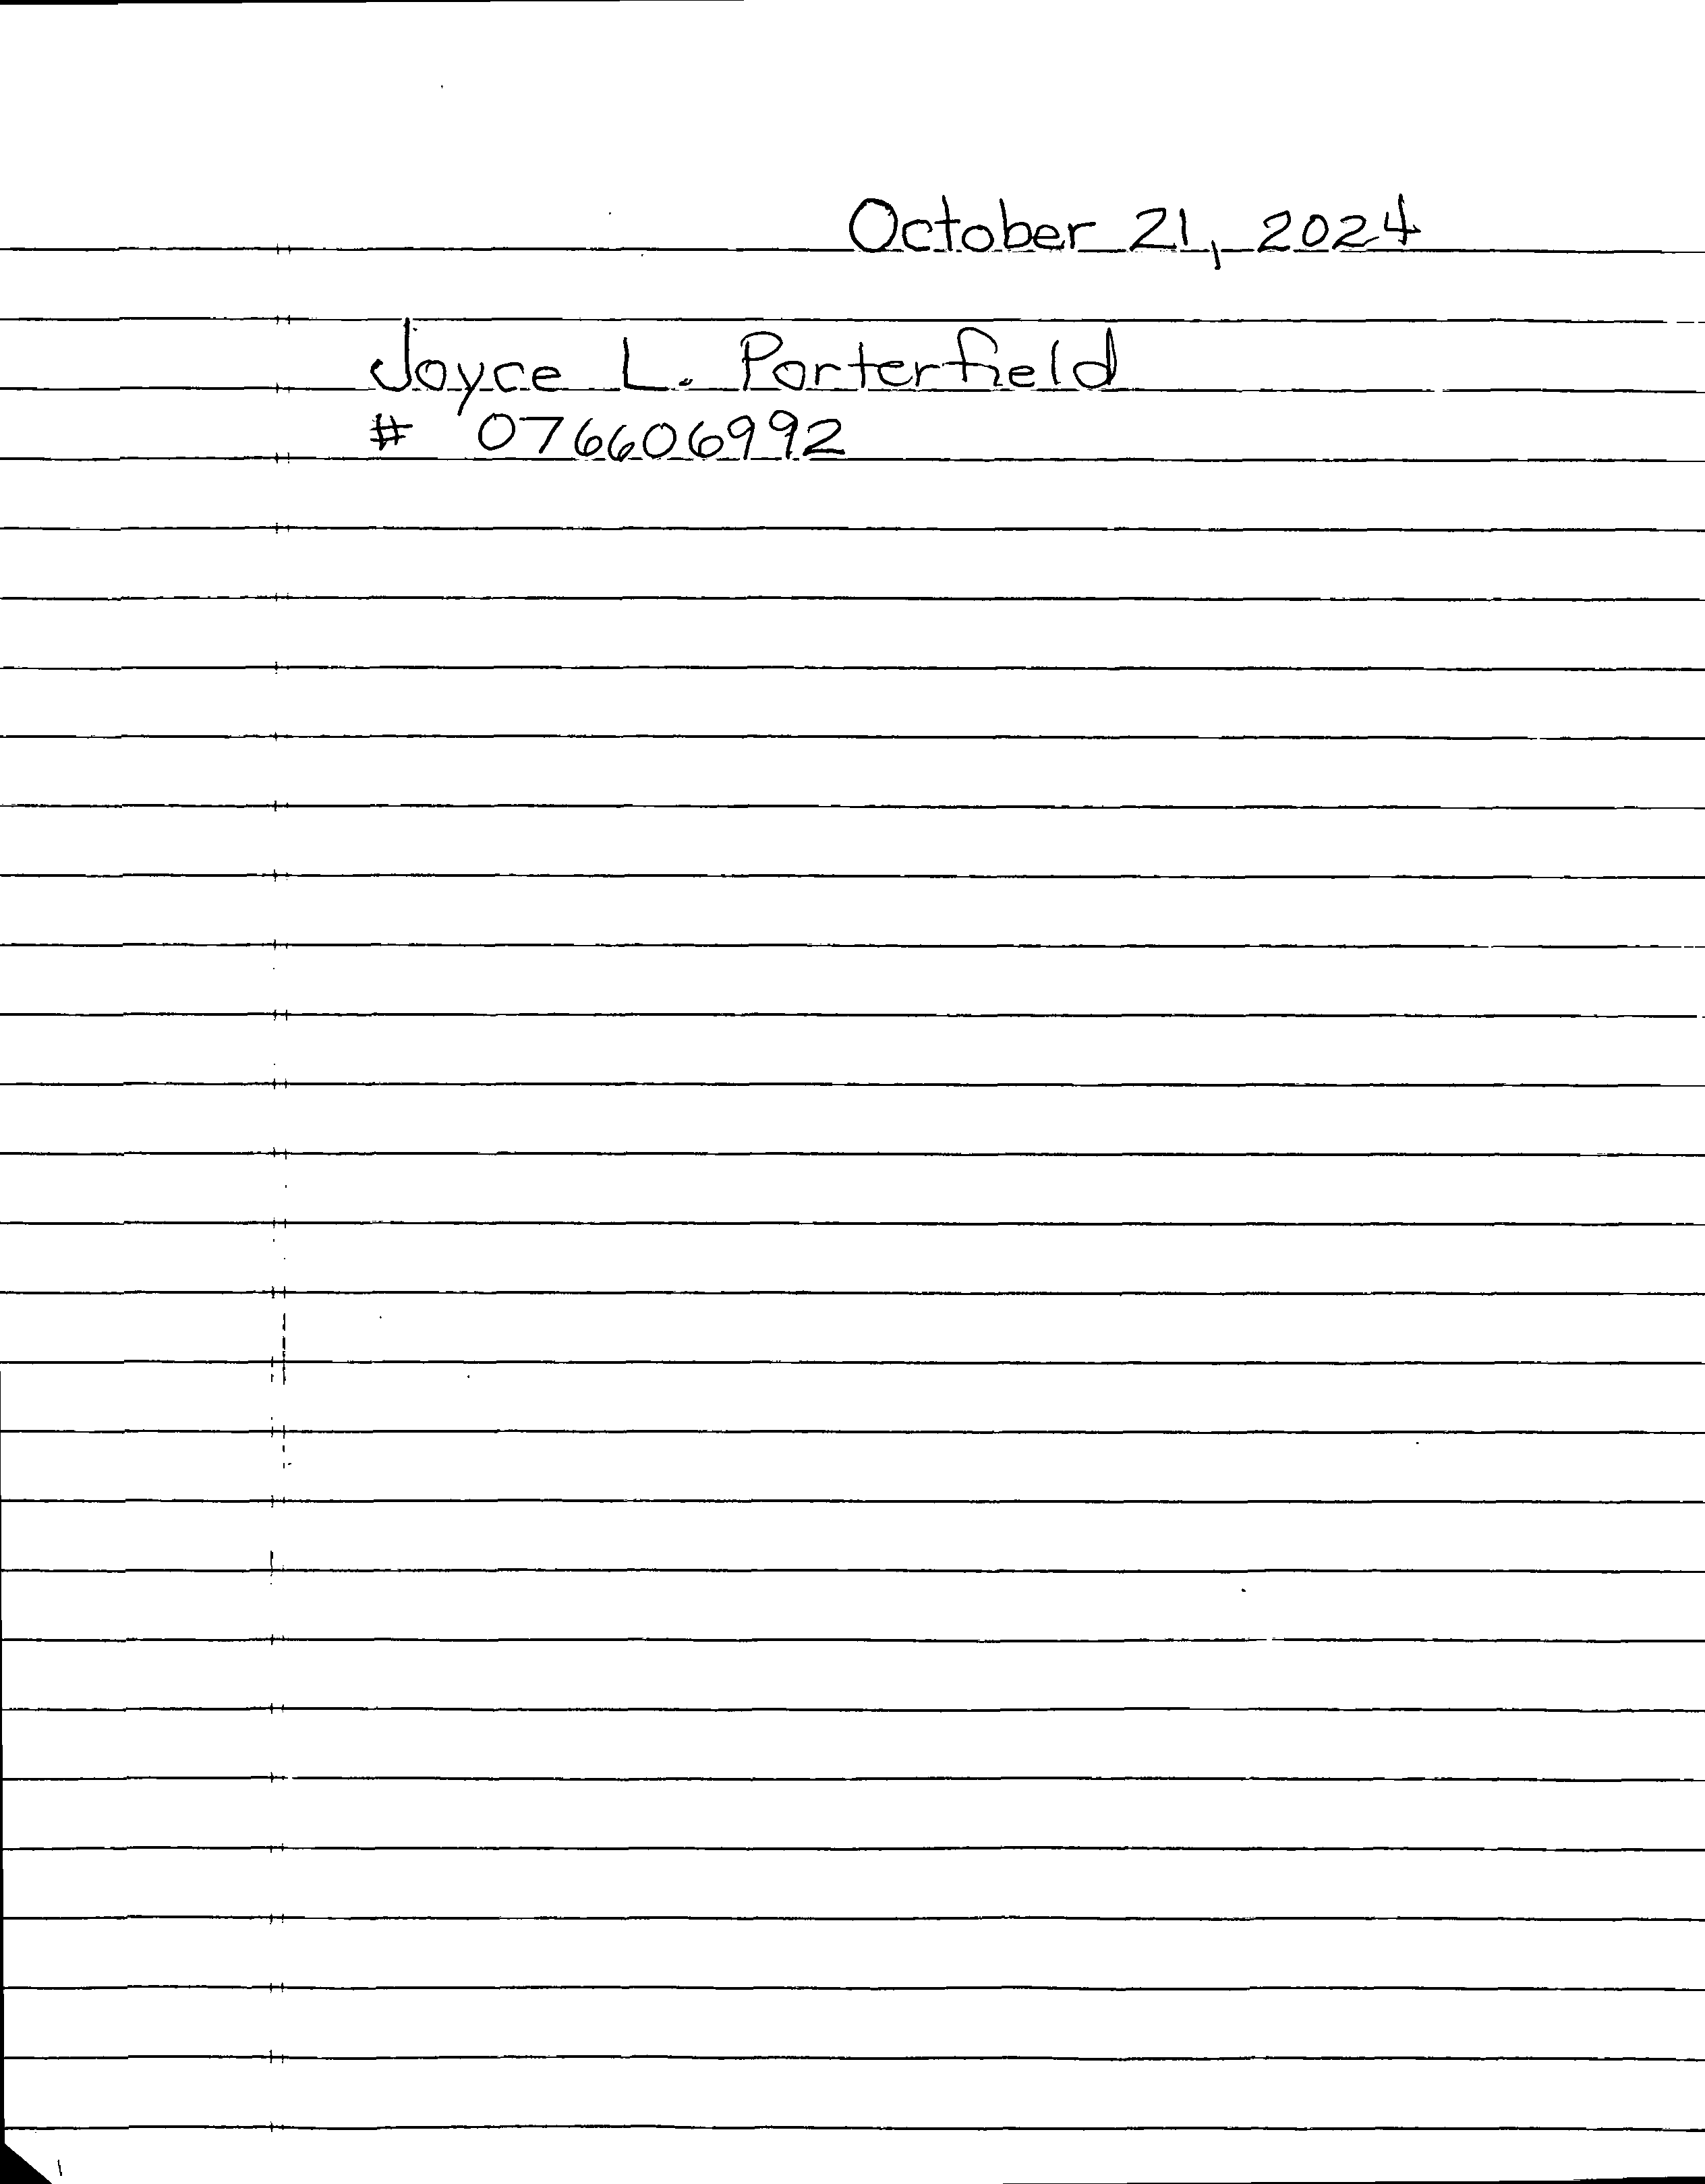 October 21, 2024
Joyce L. Porterfield
# 076606992